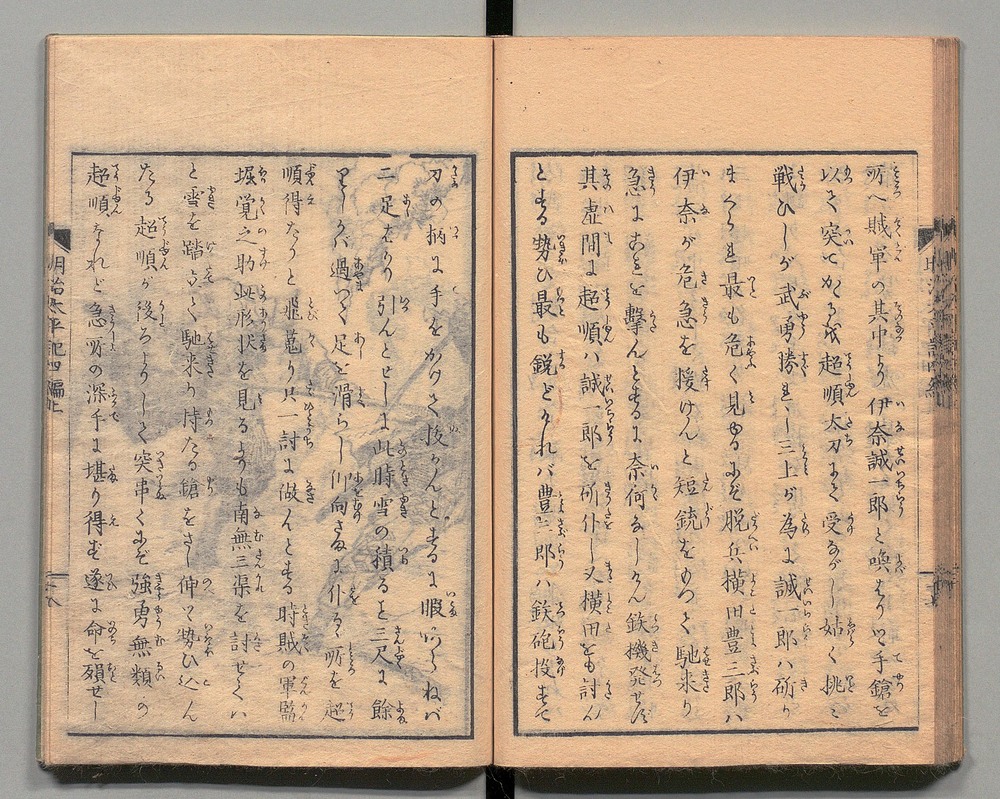 所へ賊軍の其中より伊奈誠一郎と喚はりつ手鎗を
以て突てかゝるを超順太刀にて受ながし姑く挑み
戦ひしが武勇勝れし三上が為に誠一郎ハ斫り
まくられ最も危く見ゆるにぞ脱兵横田豊三郎ハ
伊奈が危急を援けんと短銃をもつて馳来り
急にこれを撃んとするに奈何なしけん鉄機発せず
其虚間に超順ハ誠一郎を斫仆し又横田をも討ん
とする勢ひ最も鋭どけれバ豊三郎ハ鉄砲投すて
刀の柄に手をかけて抜かんとするに暇あらねバ
二足をり引んとせしに此時雪の積ること三尺に余
りしかバ過つて足を滑らし仰向さまに仆るゝ所を超
順得たりと飛蒐り只一討に做んとする時賊の軍監
堀覚之助此形状を見るよりも南無三渠を討せてハ
と雪を踏立て馳来り持たる鎗をさし伸て勢ひ込ん
たる超順が後ろよりして突串くにぞ強勇無類の
超順なれど急所の深手に堪り得ず遂に命を殞せし
明治太平記四編上